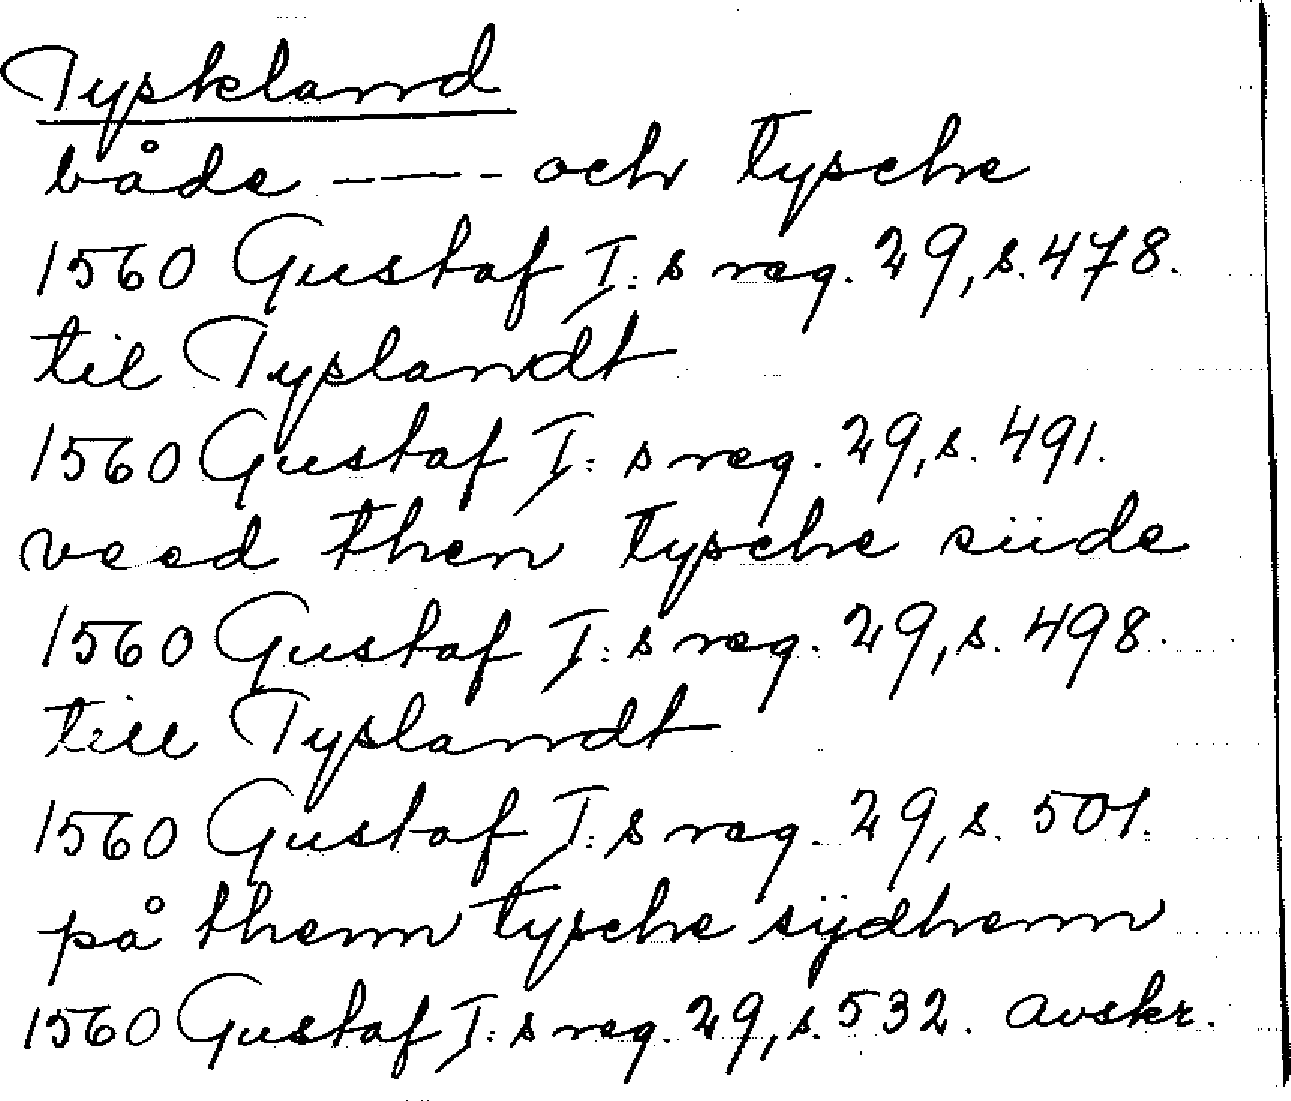 Tyskland
både ---- och tysche
1560 Gustaf I:s reg. 29, s. 478.
till Tyslandt
1560 Gustaf I:s reg. 29, s. 491.
veed then tysche siide
1560 Gustaf I:s reg. 29, s. 498.
till Tyslandt
1560 Gustaf I:s reg. 29, s. 501.
på thenn tysche sijdhenn
1560 Gustaf I:s reg. 29, s. 532. avskr.